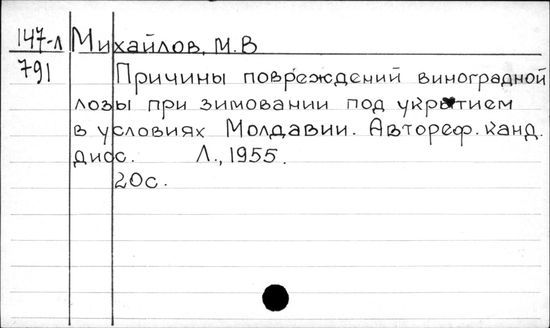 147-л Михайлов, М.В
791 Причины повреждений виноградной
лозы при зимовании под укрытием
в условиях Молдавии. Автореф. канд.
дисс. Л., 1955.
20с.